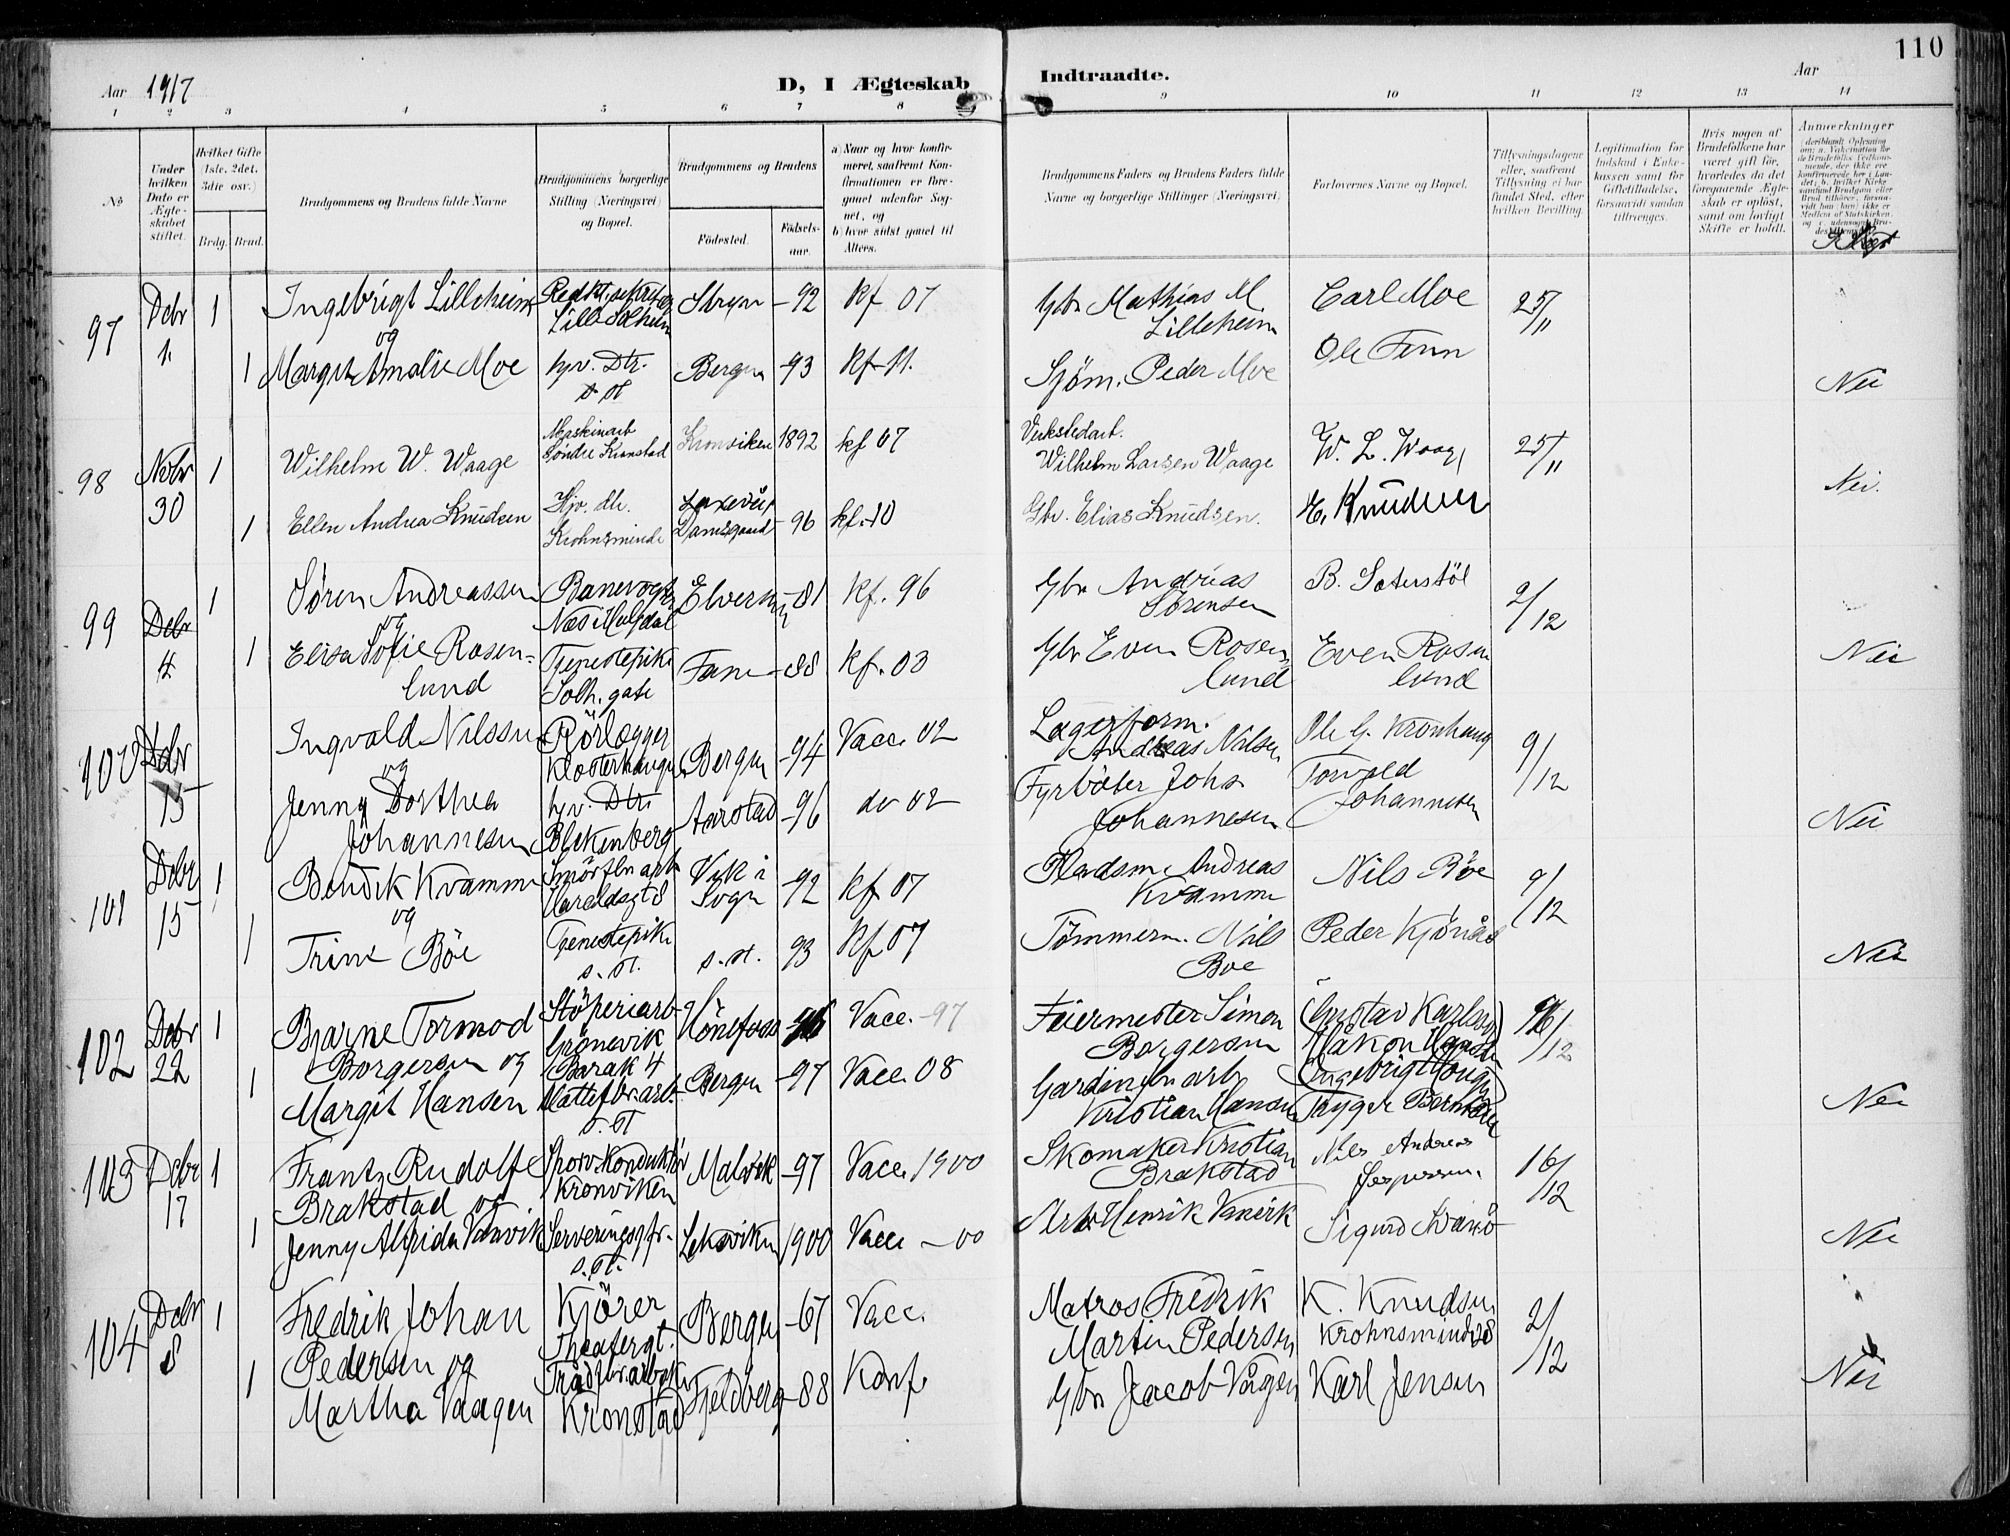 110
Aar 1917
D, I Ægteskab Indtraadte.
Aar
1 2 3 4 5 6 7 8 9 10 11 12 13 14
No
Under hvilken Dato er Ægteskabet stiftet.
Hvilket Gifte (1ste. 2det. 3die osv.)
Brdg. Brud.
Brudgommens og Brudens fulde Navne
Brudgommens borgerlige Stilling (Næringsvei) og Bopæl.
Brudgommens og Brudens
Fødested.
Fødsels-aar.
a) Naar og hvor konfirmeret, saafremt Konfirmationen er foregaaet udenfor Sognet, og
b) hvor sidst gaaet til Alters.
Brudgommens Faders og Brudens Faders fulde Navne og borgerlige Stillinger (Næringsvei)
Forlovernes Navne og Bopæl.
Tillysningsdagene eller, saafremt Tillysning ei har fundet Sted, efter hvilken Bevilling.
Legitimation for Indskud i Enkekassen samt for Giftetilladelse, forsaavidt saadan tiltrænges.
Hvis nogen af Brudefolkene har været gift før, hvorledes da det foregaaende Ægteskab er opløst, samt om lovligt Skifte er holdt.
Anmærkninger
97 Debr 1. 1 Ingebrigt Lilleheim Redkt.sekretær Lille Solheim Stryn -92 Kf 07 Gbr Mathias M Lilleheim Carl Moe 25/11
og
1 Margit Amalie Moe hjv. Dtr. s st Bergen -93 Kf 11. Sjöm. Peder Moe Ole Finn Nei
98 Nobr 30 1 Wilhelm W. Waage Maskinarb Söndre Kronstad Kronviken 1892 kf 07 Verkstedarb. Wilhelm Larsen Waage W. L. Waage 25/11
1 Ellen Andrea Knudsen Hjv. dtr. Krohnsminde Laxevåg Damsgaard -96 kf. 10 Gbr. Elias Knudsen. E. Knudsen Nei.
99 Debr 4 1 Sören Andreassen Banevogter Nes i Hulsdal Elverum -81 Kf. 96 Gbr Andreas Sörensen B. Saterstöl 2/12
og
1 Elisa Sofie Rosenlund Tjenestepike Solh. gate Fane -88 Kf. 03 Gbr Even Rosenlund Even Rosenlund Nei
100 Debr 15 Ingvald Nilssen Rörlegger Klosterhaugen Bergen -94 Vacc. 02 Lagerform. Andreas Nilsen Ole G. Kronhaug 9/12
og
Jenny Dorthea Johannesen hjv. Dtr. Blekenberg Aarstad -96 do 02 Fyrböter Johs Johannesen Torvald Johannesen Nei
101 Debr 15 1 Bendik Kvamme Smörfbr arb Haraldsgt 8 Vik i Sogn -92 Kf 07 Pladsm Andreas Kvamme Nils Böe 9/12
og
1 Trine Böe Tjenestepike s. st. s. st. 93 Kf 07 Tömmerm. Nils Boe Peder Kjönås Nei
102 Debr 22 1 Bjarne Tormod Borgersen og Stöperiarb Grönevik Barak 4 Hönefoss Vacc. -97 Feiermester Simon Borgersen (Gustav Karlsen) Håkon 16/12
1 Margit Hansen Mattefbr.arb. s. st Bergen -97 Vacc. 08 Gardinfbr arb Kristian Hansen Trygve Berntsen Nei
103 Debr 17 1 Frantz Rudolf Brakstad og Sporv.konduktör Kronviken Malvik -97 Vacc. 1900 Skomaker Kristian Brakstad Nils Andreas Jespersen. 16/12
1 Jenny Alfrida Vanvik Serveringsfr. s. st. Leksviken 1900 Vacc -00 Arb Henrik Vanvik Sigurd Svanö Nei
104 Debr 8 1 Fredrik Johan Pedersen og Kjörer Theatergt. Bergen -67 Vacc. Matros Fredrik Martin Pedersen K. Knudsen Krohnsminde 28 2/12
1 Martha Vaagen Trådfbr.arbeider Kronstad Fjeldberg -88 Konf. Gbr Jacob Vågen Karl Jensen Nei